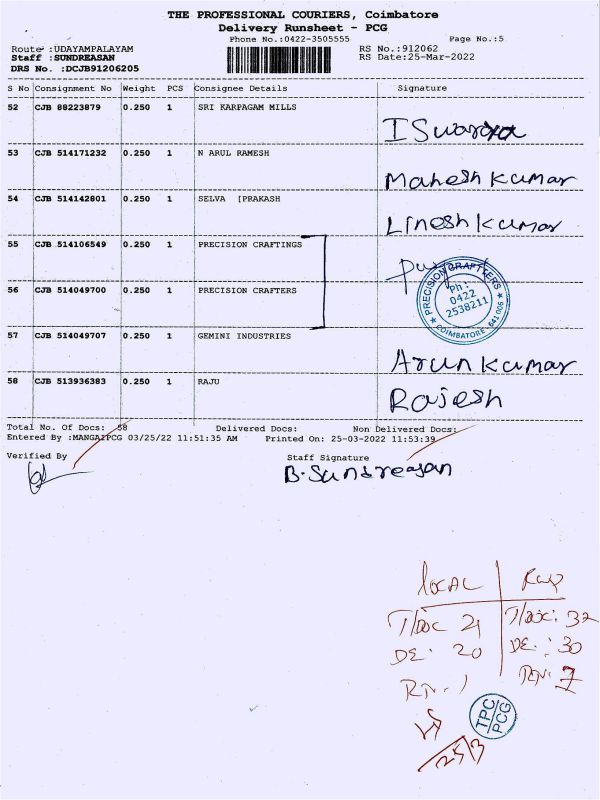 THE PROFESSIONAL COURIERS, Coimbatore
Delivery Runsheet - PCG
Phone No.:0422-3505555 Page No.:5
Route :UDAYAMPALAYAM RS No.:912062
Staff :SUNDREASAN RS Date:25-Mar-2022
DRS No. :DCJB91206205
S No Consignment No Weight PCS Consignee Details Signature
52 CJB 88223879 0.250 1 SRI KARPAGAM MILLS
ISwarya
53 CJB 514171232 0.250 1 N ARUL RAMESH
Mahesh Kumar
54 CJB 514142801 0.250 1 SELVA [PRAKASH
Linesh Kumar
55 CJB 514106549 0.250 1 PRECISION CRAFTINGS
56 CJB 514049700 0.250 1 PRECISION CRAFTERS
PRECISION CRAFTERS
Ph:
0422
2538211
COIMBATORE - 641 006
57 CJB 514049707 0.250 1 GEMINI INDUSTRIES
Arun Kumar
58 CJB 513936383 0.250 1 RAJU
Rajesh
Total No. Of Docs: 58 Delivered Docs: Non Delivered Docs:
Entered By :MANGAIPCG 03/25/22 11:51:35 AM Printed On: 25-03-2022 11:53:39
Verified By Staff Signature
B.Sundreasan
LOCAL
T/DOC 21 T/DOC: 32
DE: 20 DE: 30
RTN: 1
TPC
PCG
25/3